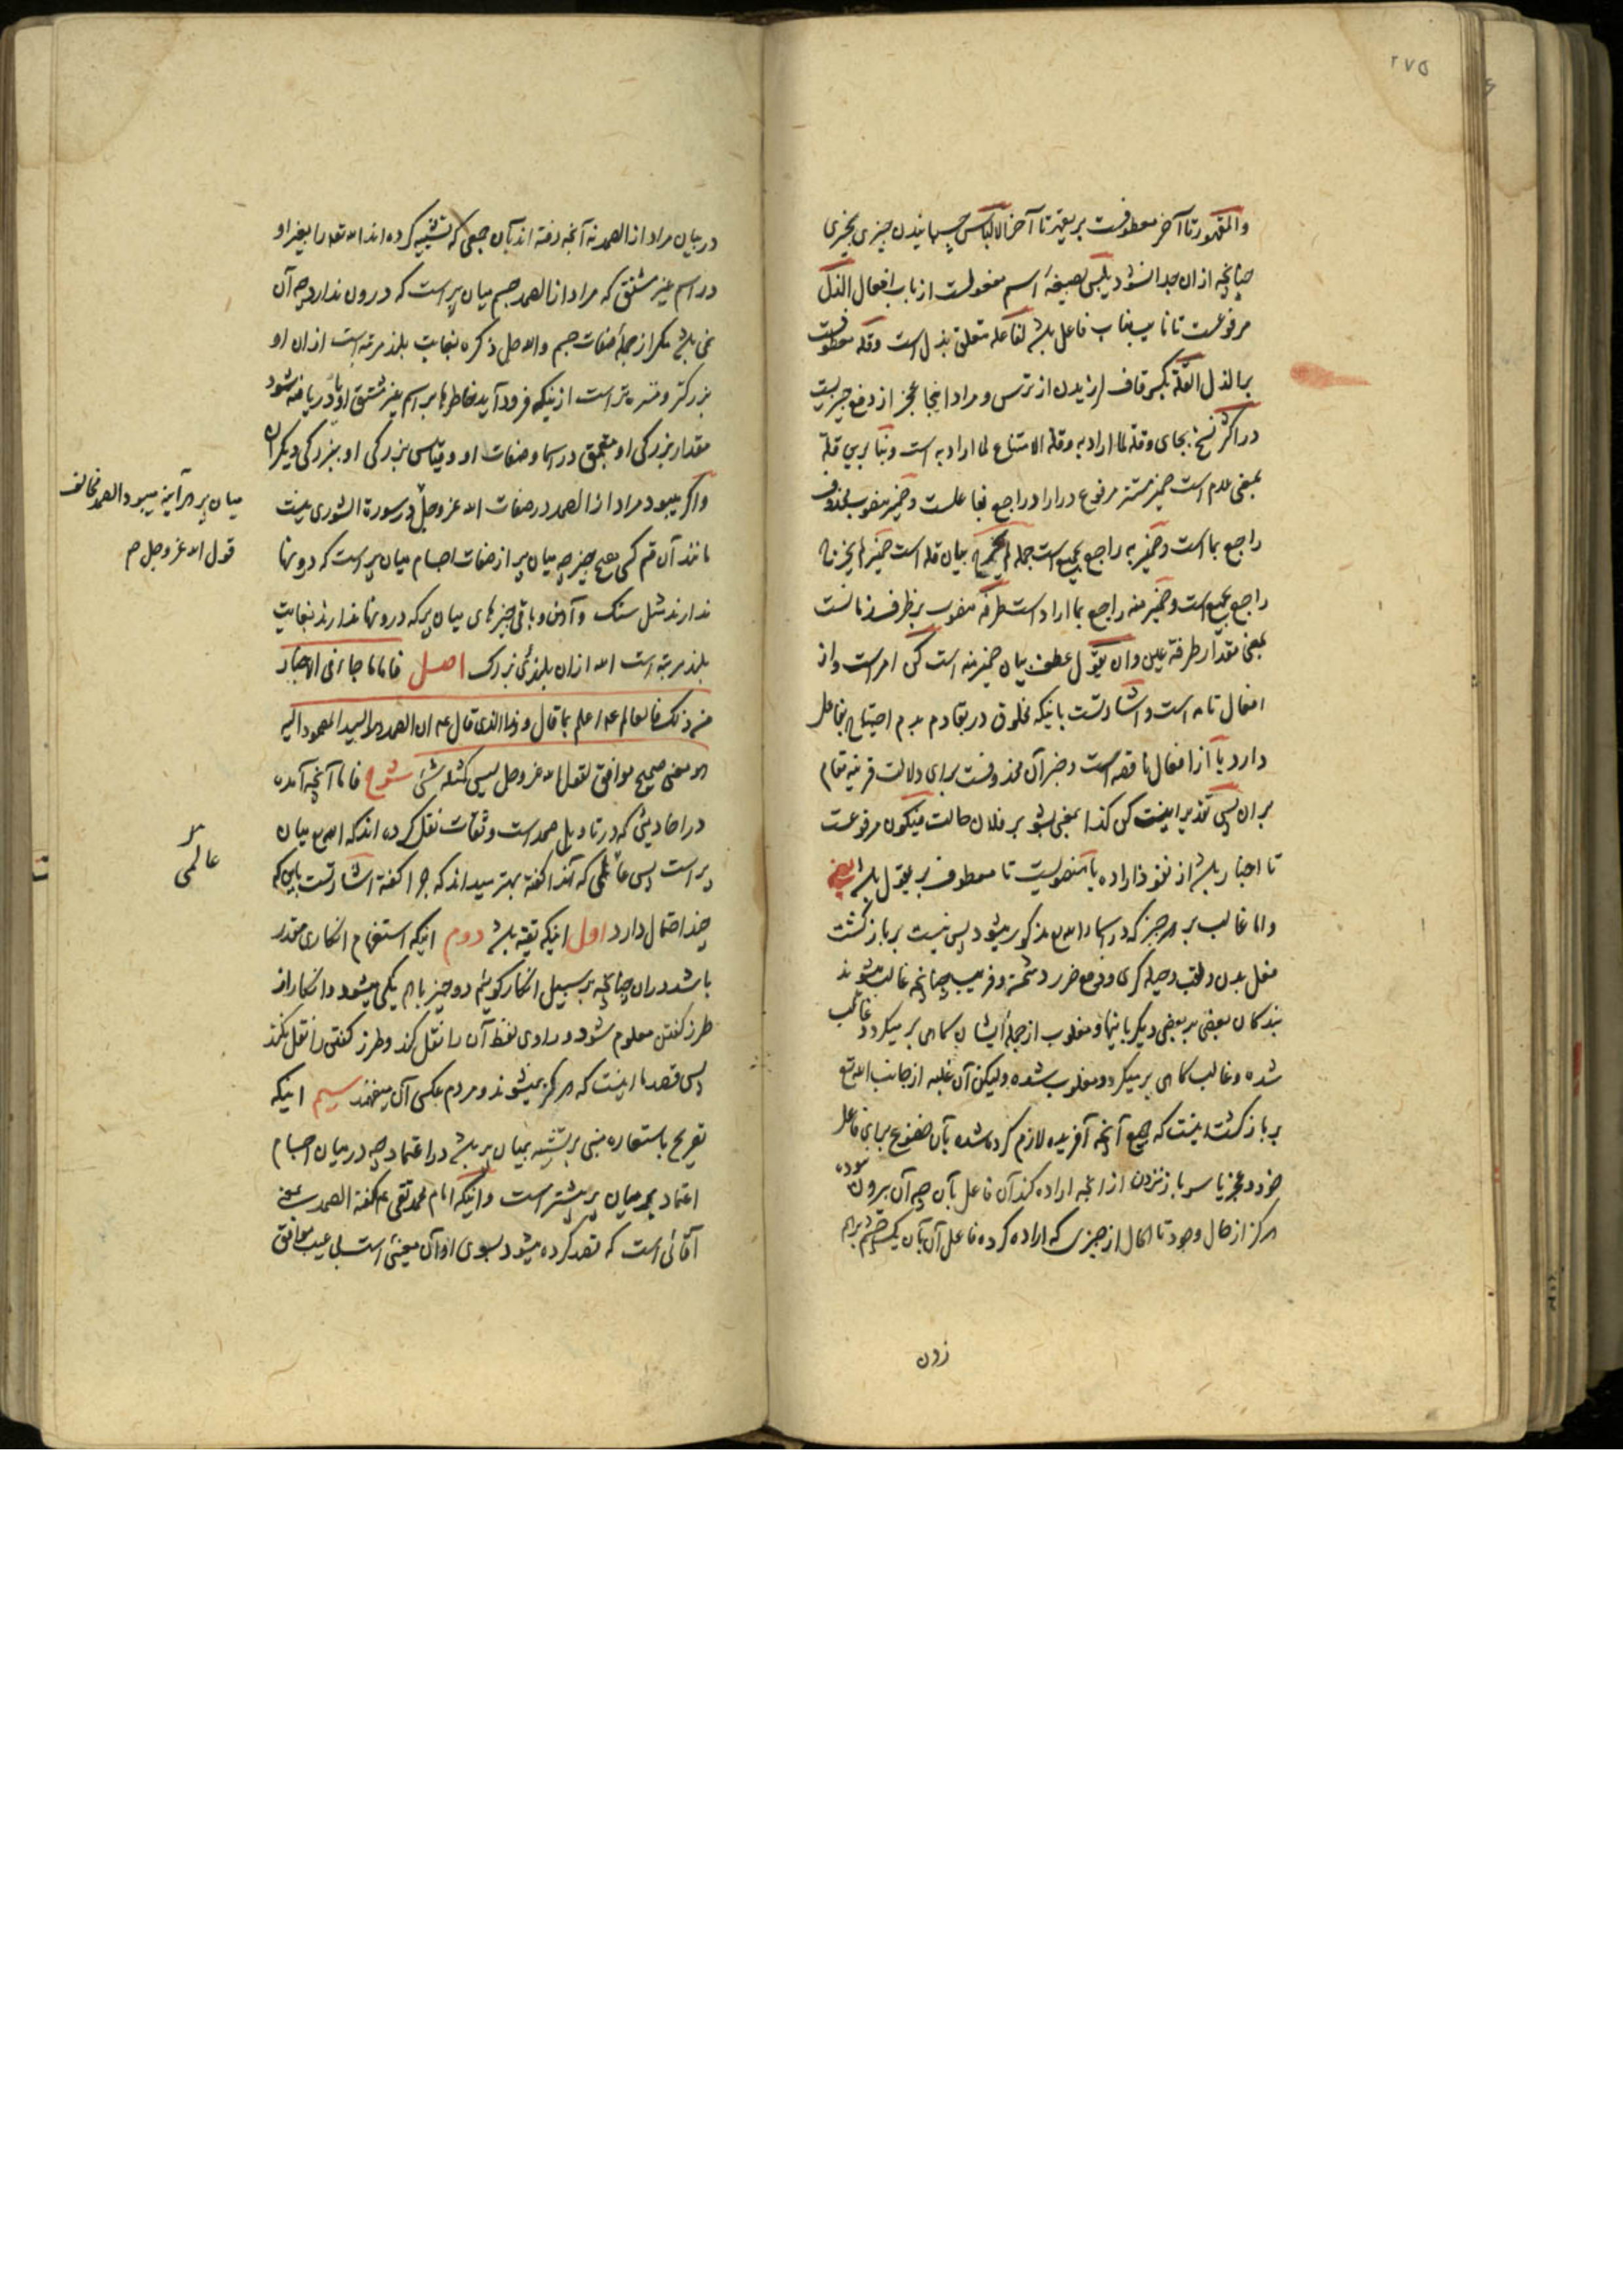 ۲۷۵
والمقهور تا آخر معطوفست بر یقهر تا آخر الالباس چسپانیدن چیزی بچیزی
چنانچه ازان جدا نشود یلبس بصیغهٔ اسم مفعولست از باب افعال الذل
مرفوعست تا نایب مناب فاعل باشد لفاعله متعلق بذل است وقلة معطوفست
بر الذل القلة بکسر قاف لرزیدن از ترس و مراد اینجا عجز از دفع چیزیست
در اکثر نسخ بجای وقلة لما اراد به وقلة الامتناع لما اراد به است و بنا بر این قلة
بمعنی عدم است ضمیر مستتر مرفوع در اراد راجع بفاعلست و ضمیر منصوب محذوف
راجع بما است و ضمیر به راجع بجمیع است جمله لم یخرج بیان قله است ضمیر لم یخرج
راجع بجمیع است و ضمیر منه راجع بما اراد است طرفة منصوب بر ظرف زمانست
بمعنی مقدار طرفة عین وان یقول عطف بیان ضمیر منه است کن امر است و از
افعال تامه است و اشارتست باینکه مخلوق در بقا دم بدم احتیاج بفاعل
دارد یا از افعال ناقصه است و خبر آن محذوفست برای دلالت قرینه مقام
بر ان پس تقدیر اینست کن کذا بمعنی بشو بر فلان حالت فیکون مرفوعست
تا اخبار باشد از نفوذ اراده یا منصوبست تا معطوف بر یقول باشد یعنی
واما غالب بر هر چیز که در اسماء الله تع مذکور میشود پس نیست بر بازگشت
فعل بدن و تعب و حیله گری و دفع ضرر دشمن و فریب چنانچه غالب میشوند
بندگان بعضی بر بعضی دیگر باینها و مغلوب از جملهٔ ایشان گاهی بر میگردد غالب
شده و غالب گاهی بر میگردد مغلوب شده ولیکن آن غلبه از جانب الله تع
بر بازگشت اینست که جمیع آنچه آفریده لازم کرده شده بآن خضوع برای فاعل
خود و عجز یا سر باز نزدن از آنچه اراده کند آن فاعل بآن چه آن بیرون نبوده
هرگز از حال وجود تا الحال از چیزی که اراده کرده فاعل آن بآن یک چشم بر هم
زدن
در بیان مراد از الصمد نه آنچه رفته اند بآن جمعی که تشبیه کرده اند الله تعه را بغیر او
در اسم غیر مشتق که مراد از الصمد جسم میان پر است که درون ندارد چه آن
نمی باشد مگر از جملهٔ صفات جسم والله جل ذکره بنهایت بلند مرتبه است ازان او
بزرگتر و منزه تر است ازینکه فرود آید خاطرها بر اسم غیر مشتق او یا دریافته شود
مقدار بزرگی او بتعمق در اسما و صفات او و قیاس بزرگی او ببزرگی دیگران
واگر میبود مراد از الصمد در صفات الله عز وجل در سورة الشوری نیست
مانند آن قسم کسی هیچ چیز چه میان پر از صفات اجسام میان پر است که درونها
ندارند مثل سنگ و آهن و باقی چیزهای میان پر که درونها ندارند بنهایت
بلند مرتبه است الله ازان بلندی بزرگ اصل فاما ما جاء فی الاخبار
من ذلک فالعالم ع اعلم بما قال وهذا الذی قال ع ان الصمد هو السید المصمود الیه
هو معنی صحیح موافق لقول الله عز وجل لیس کمثله شئ شرح فاما آنچه آمده
در احادیثی که در تاویل صمد است و ثقات نقل کرده اند که الله تع میان
پر است پس عالمی که آنرا گفته بهتر میداند که چرا گفته اشارتست باین که
چند احتمال دارد اول اینکه تقیه باشد دوم اینکه استفهام انکاری مقدر
باشد دران چنانچه بر سبیل انکار گوئیم دو چیز باهم یکی میشود و انکار از
طرز گفتن معلوم شود و راوی لفظ آن را نقل کند و طرز گفتن را نقل نکند
پس قصد ما اینست که هرگز نمیشوند و مردم عکس آن میفهمند سیم اینکه
تصریح باستعاره مبنی بر تشبیه بمیان پر باشد در اعتماد چه در میان اجسام
اعتماد بر میان پر بیشتر است و اینکه امام محمد تقی ع گفته الصمد بمعنی
آقائی است که قصد کرده میشود بسوی او آن معنی است بی عیب موافق
میان پر هر آینه میبود الصمد مخالف
قول الله عز وجل م
عالمی